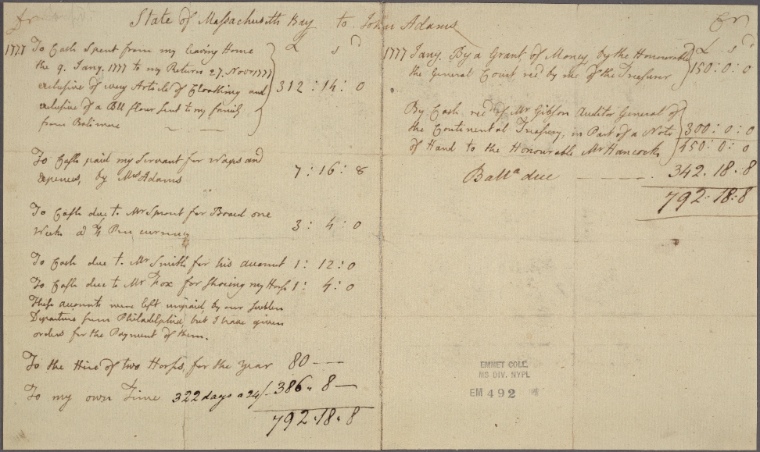 Dr State of Massachusetts Bay to John Adams Cr
1777 To Cash Spent from my leaving Home £ s d
the 9. Jany. 1777 to my Return 27. Novr 1777
exclusive of every Article of Cloathing and 312:14:0
exclusive of a Bll flour sent to my family
from Baltimore
To Cash paid my Servant for Wages and
Expences, by Mrs Adams 7:16:8
To Cash due to Mr Sprout for Board one
Week a currency 3:4:0
To Cash due to Mr Smith for his account 1:12:0
To Cash due to Mr Fox for Shoeing my Horse 1:4:0
These accounts were left unpaid by our sudden
Departure from Philadelphia, but I have given
orders for the Payment of them.
To the Hire of two Horses, for the Year 80 —
To my own Time 322 days a 24/ 386.. 8 —
792..18..8
1777 Jany. By a Grant of Money by the Honourable £ s d
the General Court recd by me of the Treasurer 150:0:0
By Cash, recd of Mr Gibson Auditor General of
the Continental Treasury, in Part of a Note 300:0:0
of Hand to the Honourable Mr Hancock 450:0:0
Balla due 342..18..8
792..18..8
EMMET COLL.
MS DIV. NYPL
EM 492